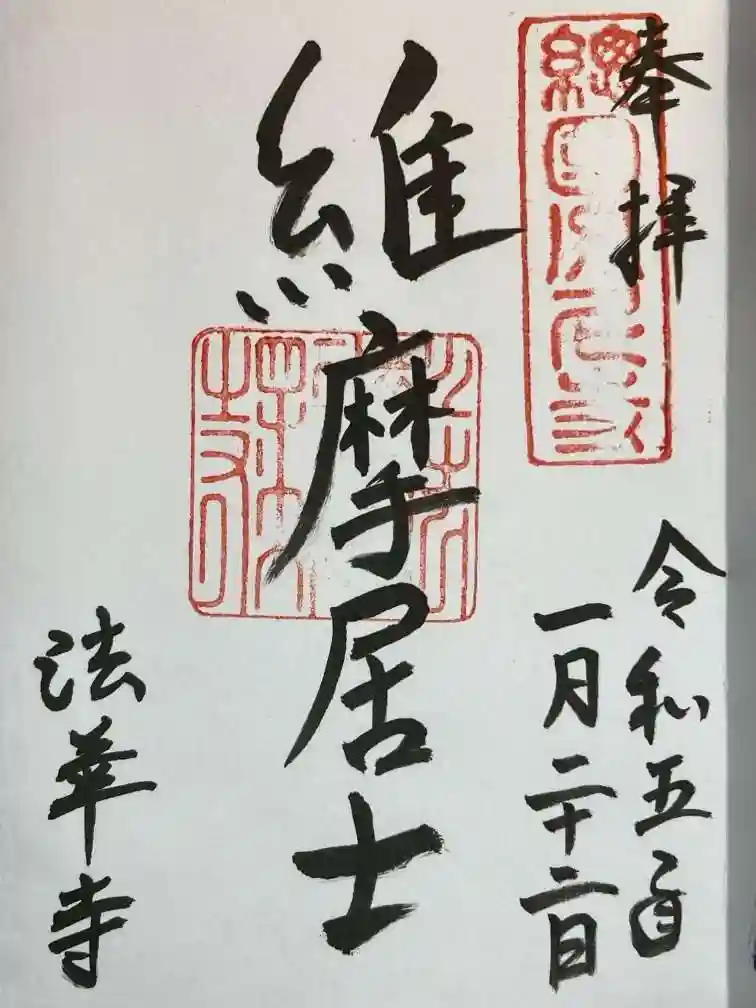 奉拝
令和五
一月二十二日
總
維摩居士
法華寺